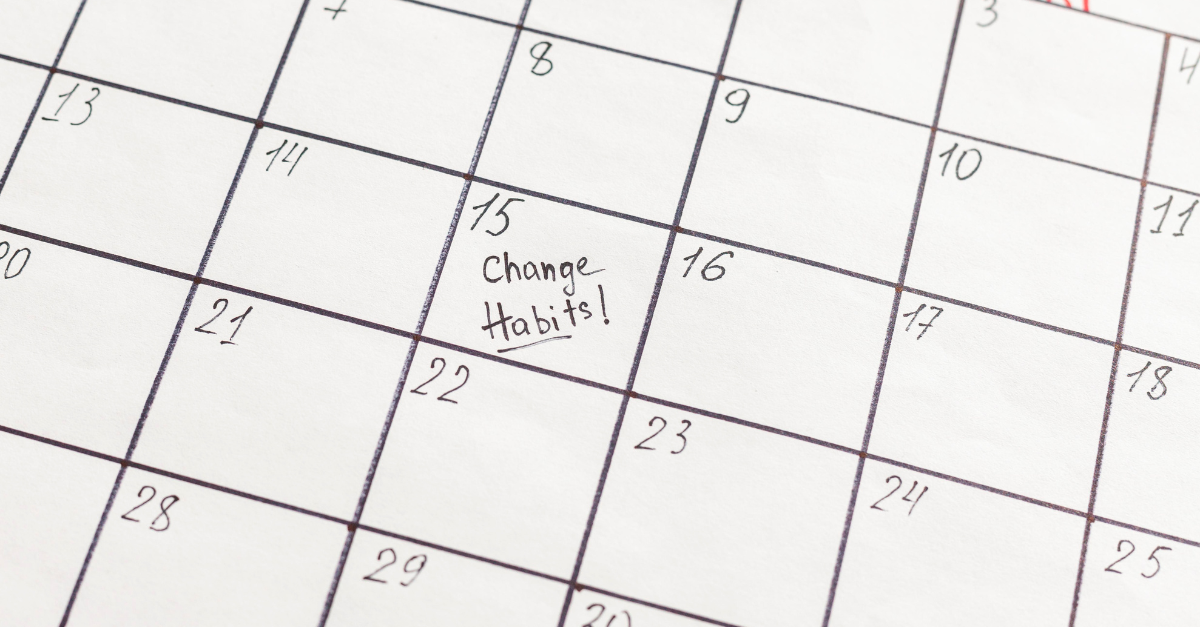 7
8
9
3
10
4
11
13
14
15
Change
Habits!
16
17
18
20
21
22
23
24
25
28
29